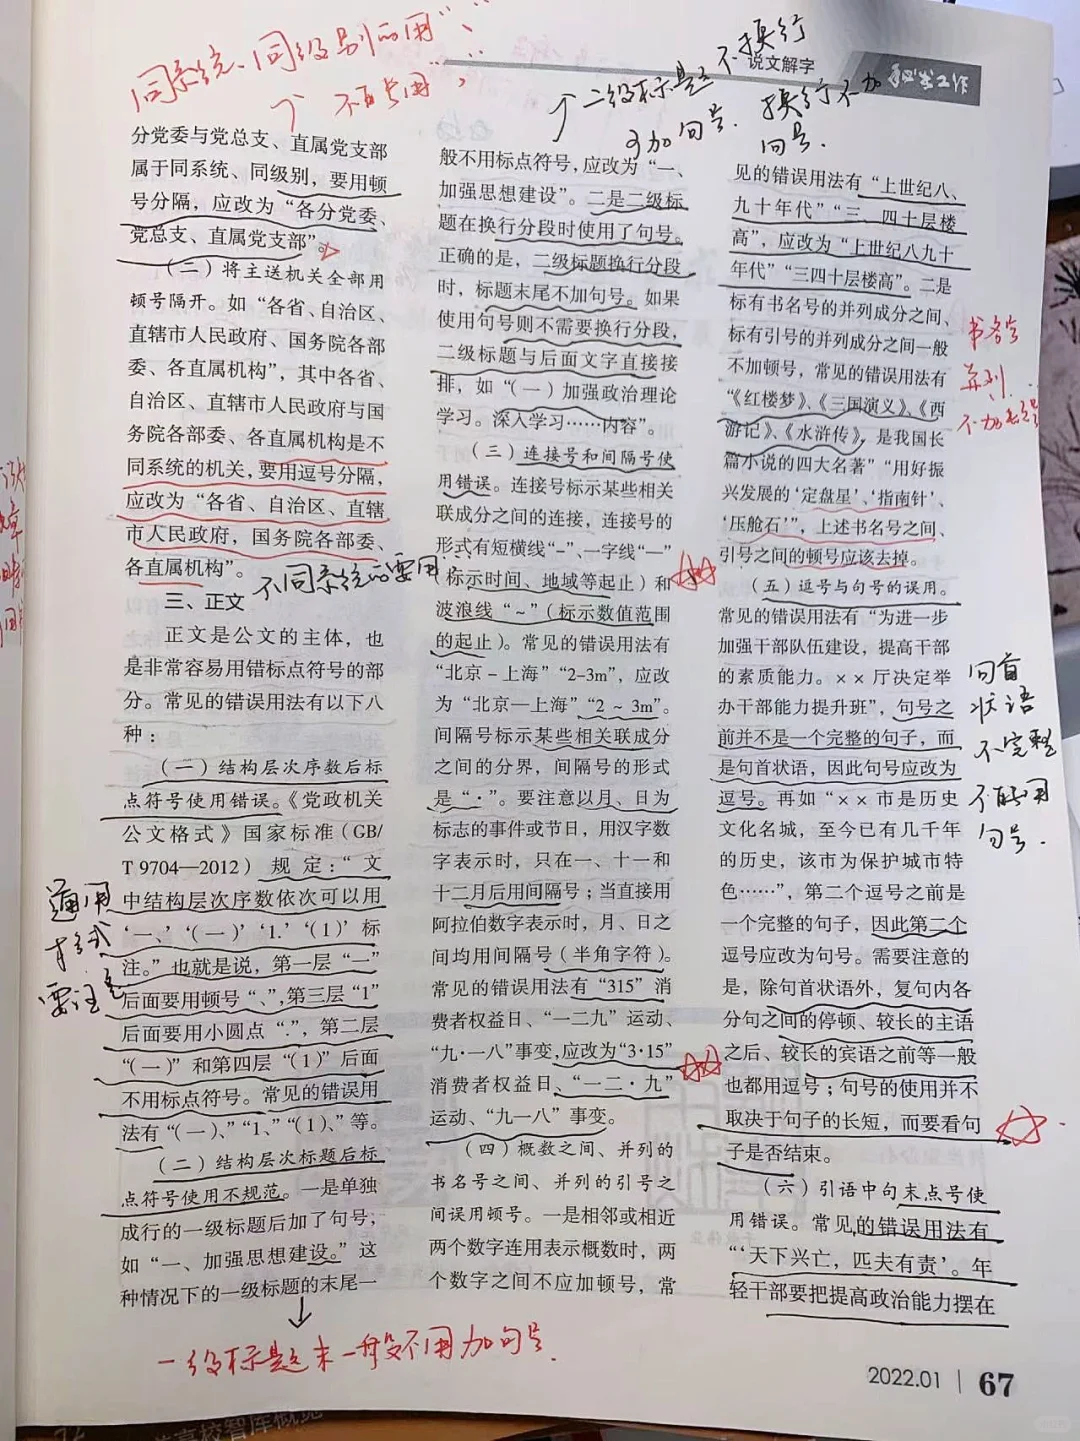 同系统、同级别的用“、”
不再用“，”
二级标题不换行
可加句号.
换行不加
句号.
说文解字
秘书工作
分党委与党总支、直属党支部
属于同系统、同级别，要用顿
号分隔，应改为“各分党委、
党总支、直属党支部”。
（二）将主送机关全部用
顿号隔开。如“各省、自治区、
直辖市人民政府、国务院各部
委、各直属机构”，其中各省、
自治区、直辖市人民政府与国
务院各部委、各直属机构是不
同系统的机关，要用逗号分隔，
应改为“各省、自治区、直辖
市人民政府，国务院各部委、
各直属机构”。
不同系统的要用，
三、正文
正文是公文的主体，也
是非常容易用错标点符号的部
分。常见的错误用法有以下八
种：
（一）结构层次序数后标
点符号使用错误。《党政机关
公文格式》国家标准（GB/
T 9704—2012）规定：“文
中结构层次序数依次可以用
‘一、’‘（一）’‘1.’‘（1）’标
注。”也就是说，第一层“一”
后面要用顿号“、”，第三层“1”
后面要用小圆点“.”，第二层
“（一）”和第四层“（1）”后面
不用标点符号。常见的错误用
法有“（一）、”“1、”“（1）、”等。
（二）结构层次标题后标
点符号使用不规范。一是单独
成行的一级标题后加了句号，
如“一、加强思想建设。”这
种情况下的一级标题的末尾一
通用
格式
要注意
一级标题末一般不用加句号.
般不用标点符号，应改为“一、
加强思想建设”。二是二级标
题在换行分段时使用了句号。
正确的是，二级标题换行分段
时，标题末尾不加句号。如果
使用句号则不需要换行分段，
二级标题与后面文字直接接
排，如“（一）加强政治理论
学习。深入学习……内容”。
（三）连接号和间隔号使
用错误。连接号标示某些相关
联成分之间的连接，连接号的
形式有短横线“-”、一字线“—”
（标示时间、地域等起止）和
波浪线“~”（标示数值范围
的起止）。常见的错误用法有
“北京－上海”“2-3m”，应改
为“北京—上海”“2 ~ 3m”。
间隔号标示某些相关联成分
之间的分界，间隔号的形式
是“·”。要注意以月、日为
标志的事件或节日，用汉字数
字表示时，只在一、十一和
十二月后用间隔号；当直接用
阿拉伯数字表示时，月、日之
间均用间隔号（半角字符）。
常见的错误用法有“315”消
费者权益日、“一二九”运动、
“九·一八”事变，应改为“3·15”
消费者权益日、“一二·九”
运动、“九一八”事变。
（四）概数之间、并列的
书名号之间、并列的引号之
间误用顿号。一是相邻或相近
两个数字连用表示概数时，两
个数字之间不应加顿号，常
见的错误用法有“上世纪八、
九十年代”“三、四十层楼
高”，应改为“上世纪八九十
年代”“三四十层楼高”。二是
标有书名号的并列成分之间、
标有引号的并列成分之间一般
不加顿号，常见的错误用法有
“《红楼梦》、《三国演义》、《西
游记》、《水浒传》，是我国长
篇小说的四大名著”“用好振
兴发展的‘定盘星’、‘指南针’、
‘压舱石’”，上述书名号之间、
引号之间的顿号应该去掉。
（五）逗号与句号的误用。
常见的错误用法有“为进一步
加强干部队伍建设，提高干部
的素质能力。××厅决定举
办干部能力提升班”，句号之
前并不是一个完整的句子，而
是句首状语，因此句号应改为
逗号。再如“××市是历史
文化名城，至今已有几千年
的历史，该市为保护城市特
色……”，第二个逗号之前是
一个完整的句子，因此第二个
逗号应改为句号。需要注意的
是，除句首状语外，复句内各
分句之间的停顿、较长的主语
之后、较长的宾语之前等一般
也都用逗号；句号的使用并不
取决于句子的长短，而要看句
子是否结束。
（六）引语中句末点号使
用错误。常见的错误用法有
“‘天下兴亡，匹夫有责’。年
轻干部要把提高政治能力摆在
书名号
并列
不加顿号
句首
状语
不完整
不能用
句号.
2022.01 | 67
高校智库概览